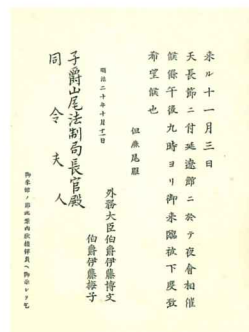 来ル十一月三日
天長節ニ付延遼館ニ於テ夜會相催
候條午後九時ヨリ御来臨被下度致
希望候也
但燕尾服
明治二十年十月十一日
外務大臣伯爵伊藤博文
伯爵伊藤梅子
子爵山尾法制局長官殿
同令夫人